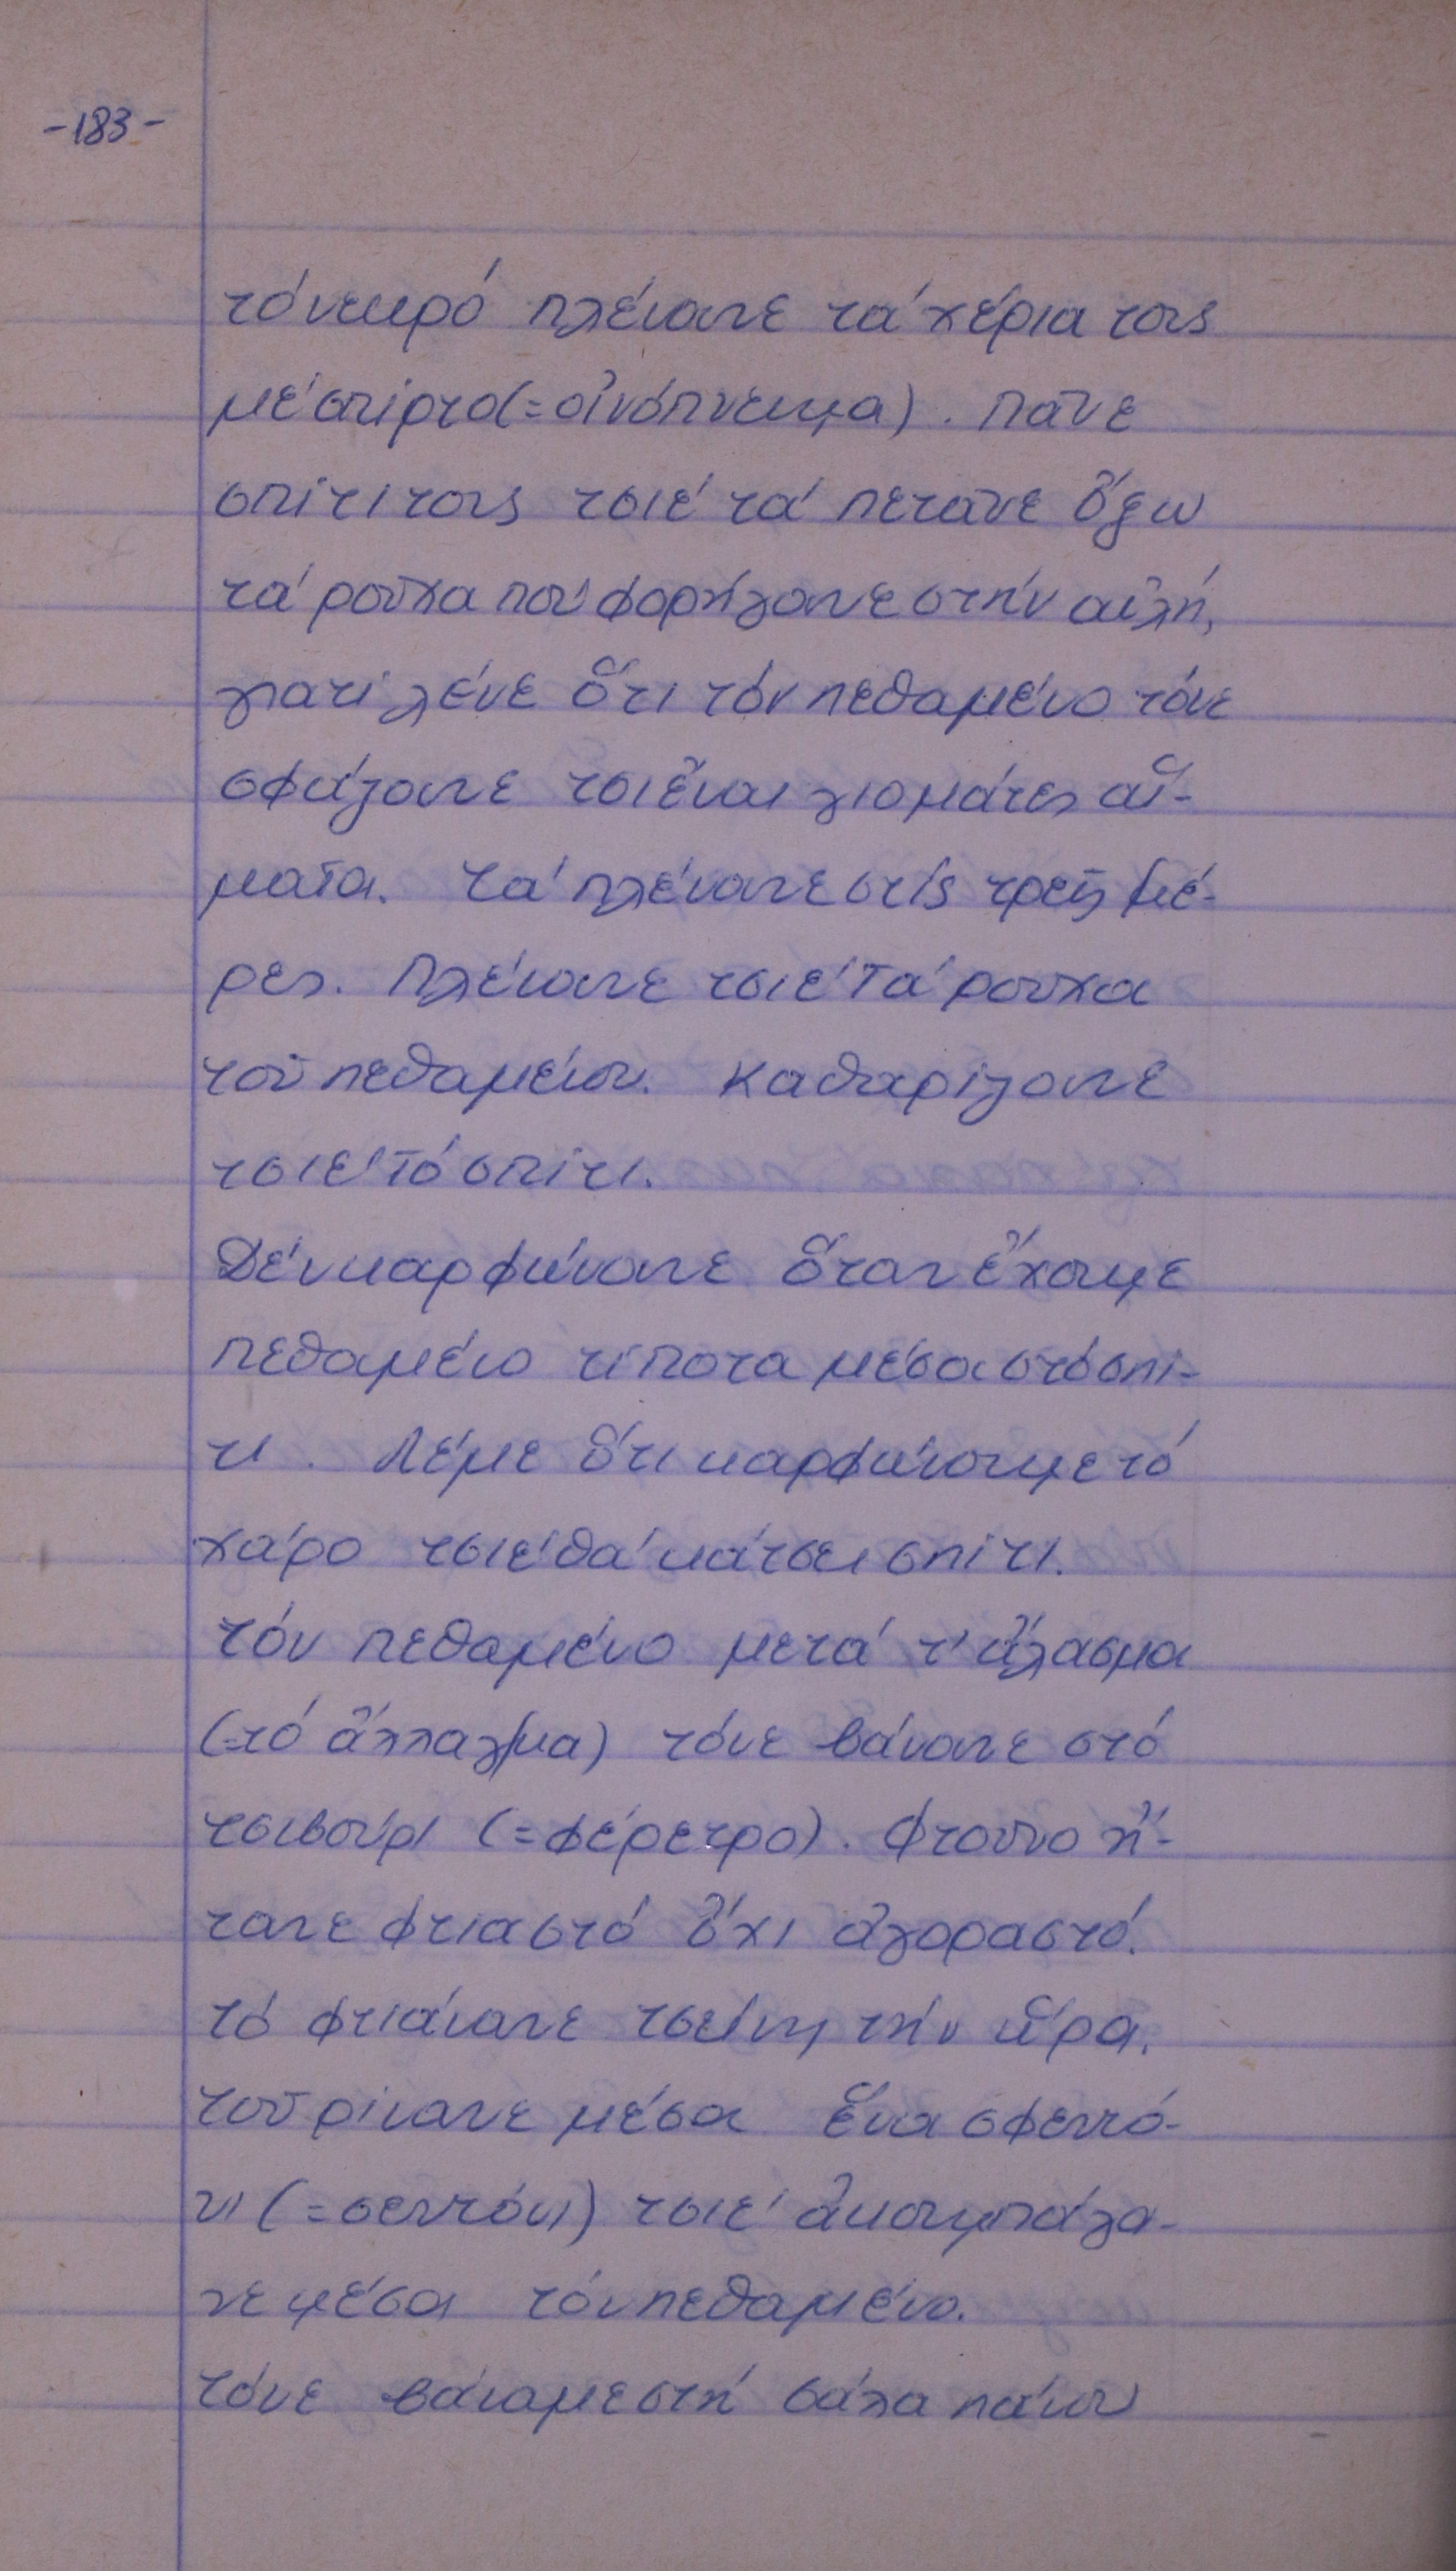 -183-
τό νεκρό πλένουνε τά χέρια τους
μέ σπίρτο (=οἰνόπνευμα). Πᾶνε
σπίτι τους τσιέ τά πετᾶνε ὄξω
τά ροῦχα πού φορήγανε στήν αὐλή,
γιατί λένε ὅτι τόν πεθαμένο τόνε
σφάζουνε τσι εἶναι γιομάτες αἵ-
ματα. Τά πλένουνε στίς τρεῖς μέ-
ρες. Πλένουνε τσιέ τά ροῦχα
τοῦ πεθαμένου. Καθαρίζουνε
τσιέ τό σπίτι.
Δέν καρφώνουνε ὅταν ἔχουμε
πεθαμένο τίποτα μέσα στό σπί-
τι. Λέμε ὅτι καρφώνουμε τό
χάρο τσιέ θά κάτσει σπίτι.
Τόν πεθαμένο μετά τ' ἄλασμα
(=τό ἄλλαγμα) τόνε βάνουνε στό
τσιβούρι (=φέρετρο). Φτοῦνο ἤ-
τανε φτιαστό ὄχι ἀγοραστό.
Τό φτιάνανε τσείνη τήν ὥρα.
Τοῦ ρίνανε μέσα ἕνα σφεντό-
νι (=σεντόνι) τσιέ ἀκουμπάγα-
νε μέσα τόν πεθαμένο.
Τόνε βάναμε στή σάλα πάνου